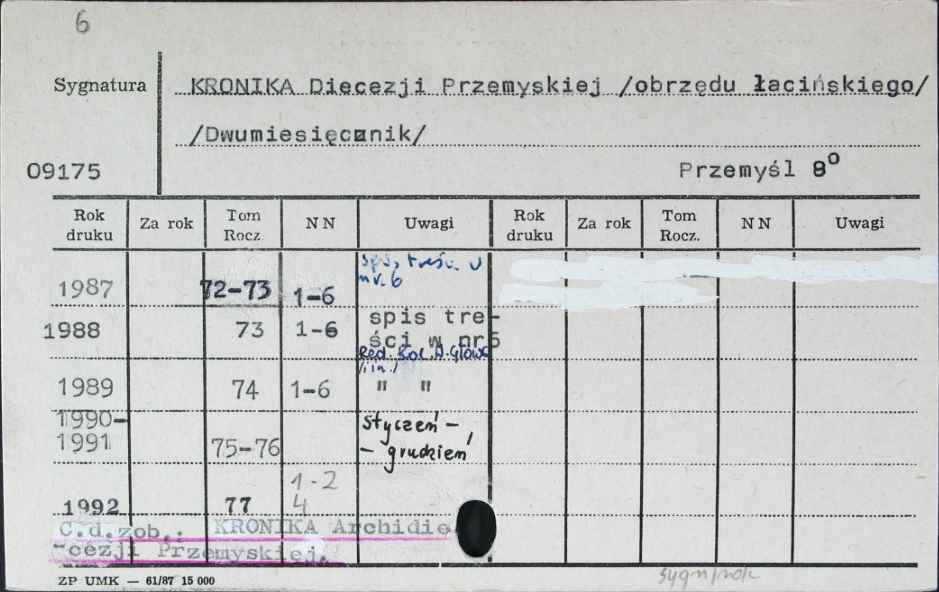 6
Sygnatura KRONIKA Diecezji Przemyskiej /obrzędu łacińskiego/
/Dwumiesięcznik/
09175 Przemyśl 8°
Rok druku Za rok Tom Rocz. NN Uwagi Rok druku Za rok Tom Rocz. NN Uwagi
spis treśc. w
nr. 6
1987 72-73 1-6
spis tre-
1988 73 1-6
ści w nr6
Red. Boł. A. Głowa
/i in./
1989 74 1-6 " "
1990-
styczeń -
1991 75-76
- grudzień
1-2
1992 77 4
C.d.zob.: KRONIKA Archidie
-cezji Przemyskiej.
ZP UMK — 61/87 15 000
sygn/rok